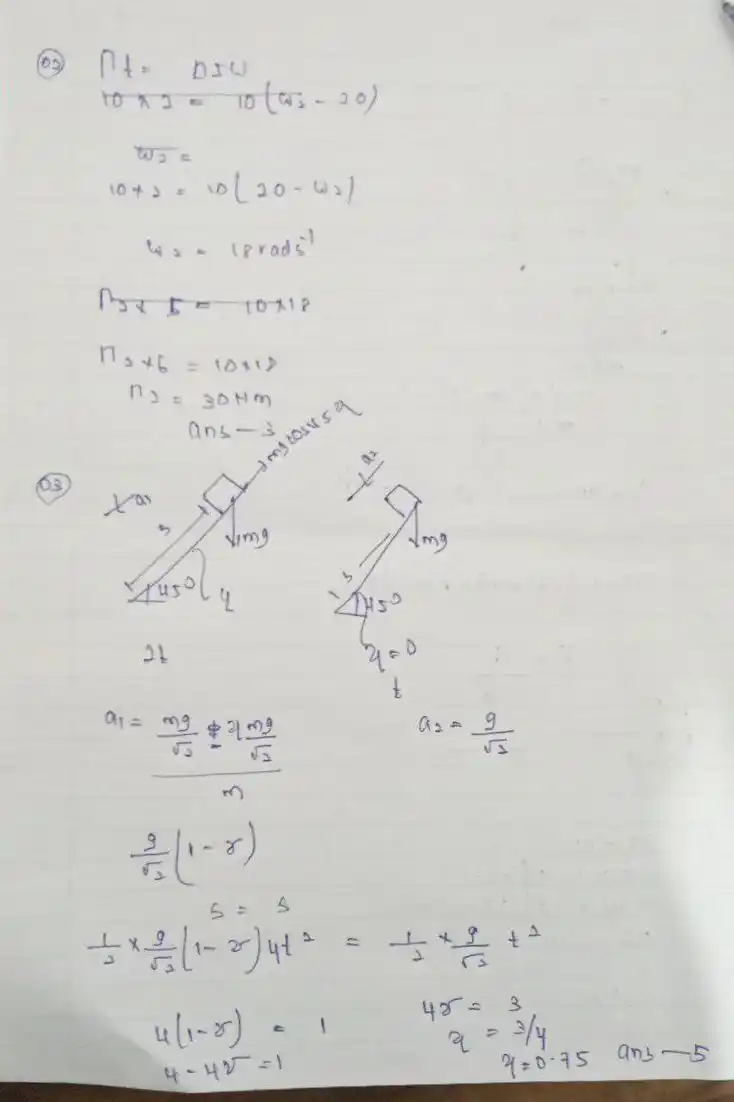 02 Γt = ΔIω
10 × 2 = 10(ω2 - 20)
ω2 =
10 × 2 = 10(20 - ω2)
ω2 = 18 rads⁻¹
Γ2 × 6 = 10×18
Γ2 × 6 = 10×18
Γ2 = 30 Nm
ans — 3
03
a1
mg cos 45 μ
a2
s
mg
mg
s
45°
μ
45°
2t
μ=0
t
a1 = mg/√2 - μ mg/√2 / m
a2 = g/√2
g/√2 (1 - μ)
s = s
1/2 × g/√2 (1 - μ) 4t² = 1/2 × g/√2 t²
4(1-μ) = 1
4μ = 3
4 - 4μ = 1
μ = 3/4
μ = 0.75 ans — 5